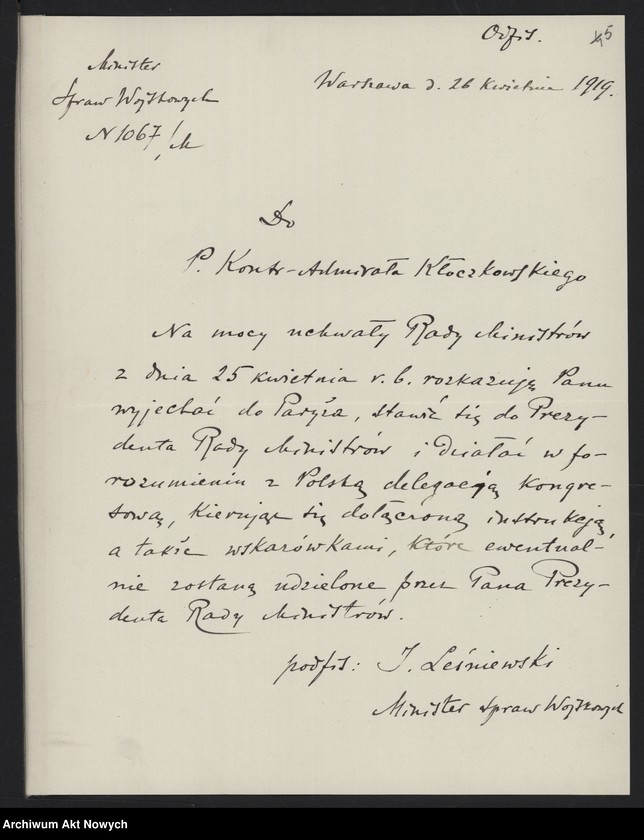 Odpis.
5
Minister
Spraw Wojskowych
N 1067/M
Warszawa d. 26 kwietnia 1919.
Do
P. Kontr-Admirała Kłoczkowskiego
Na mocy uchwały Rady Ministrów
z dnia 25 kwietnia r. b. rozkazuję Panu
wyjechać do Paryża, stawić się do Prezy-
denta Rady Ministrów i działać w po-
rozumieniu z Polską delegacją kongre-
sową, kierując się dołączoną instrukcją,
a także wskazówkami, które ewentual-
nie zostaną udzielone przez Pana Prezy-
denta Rady Ministrów.
podpis: J. Leśniewski
Minister Spraw Wojskowych
Archiwum Akt Nowych